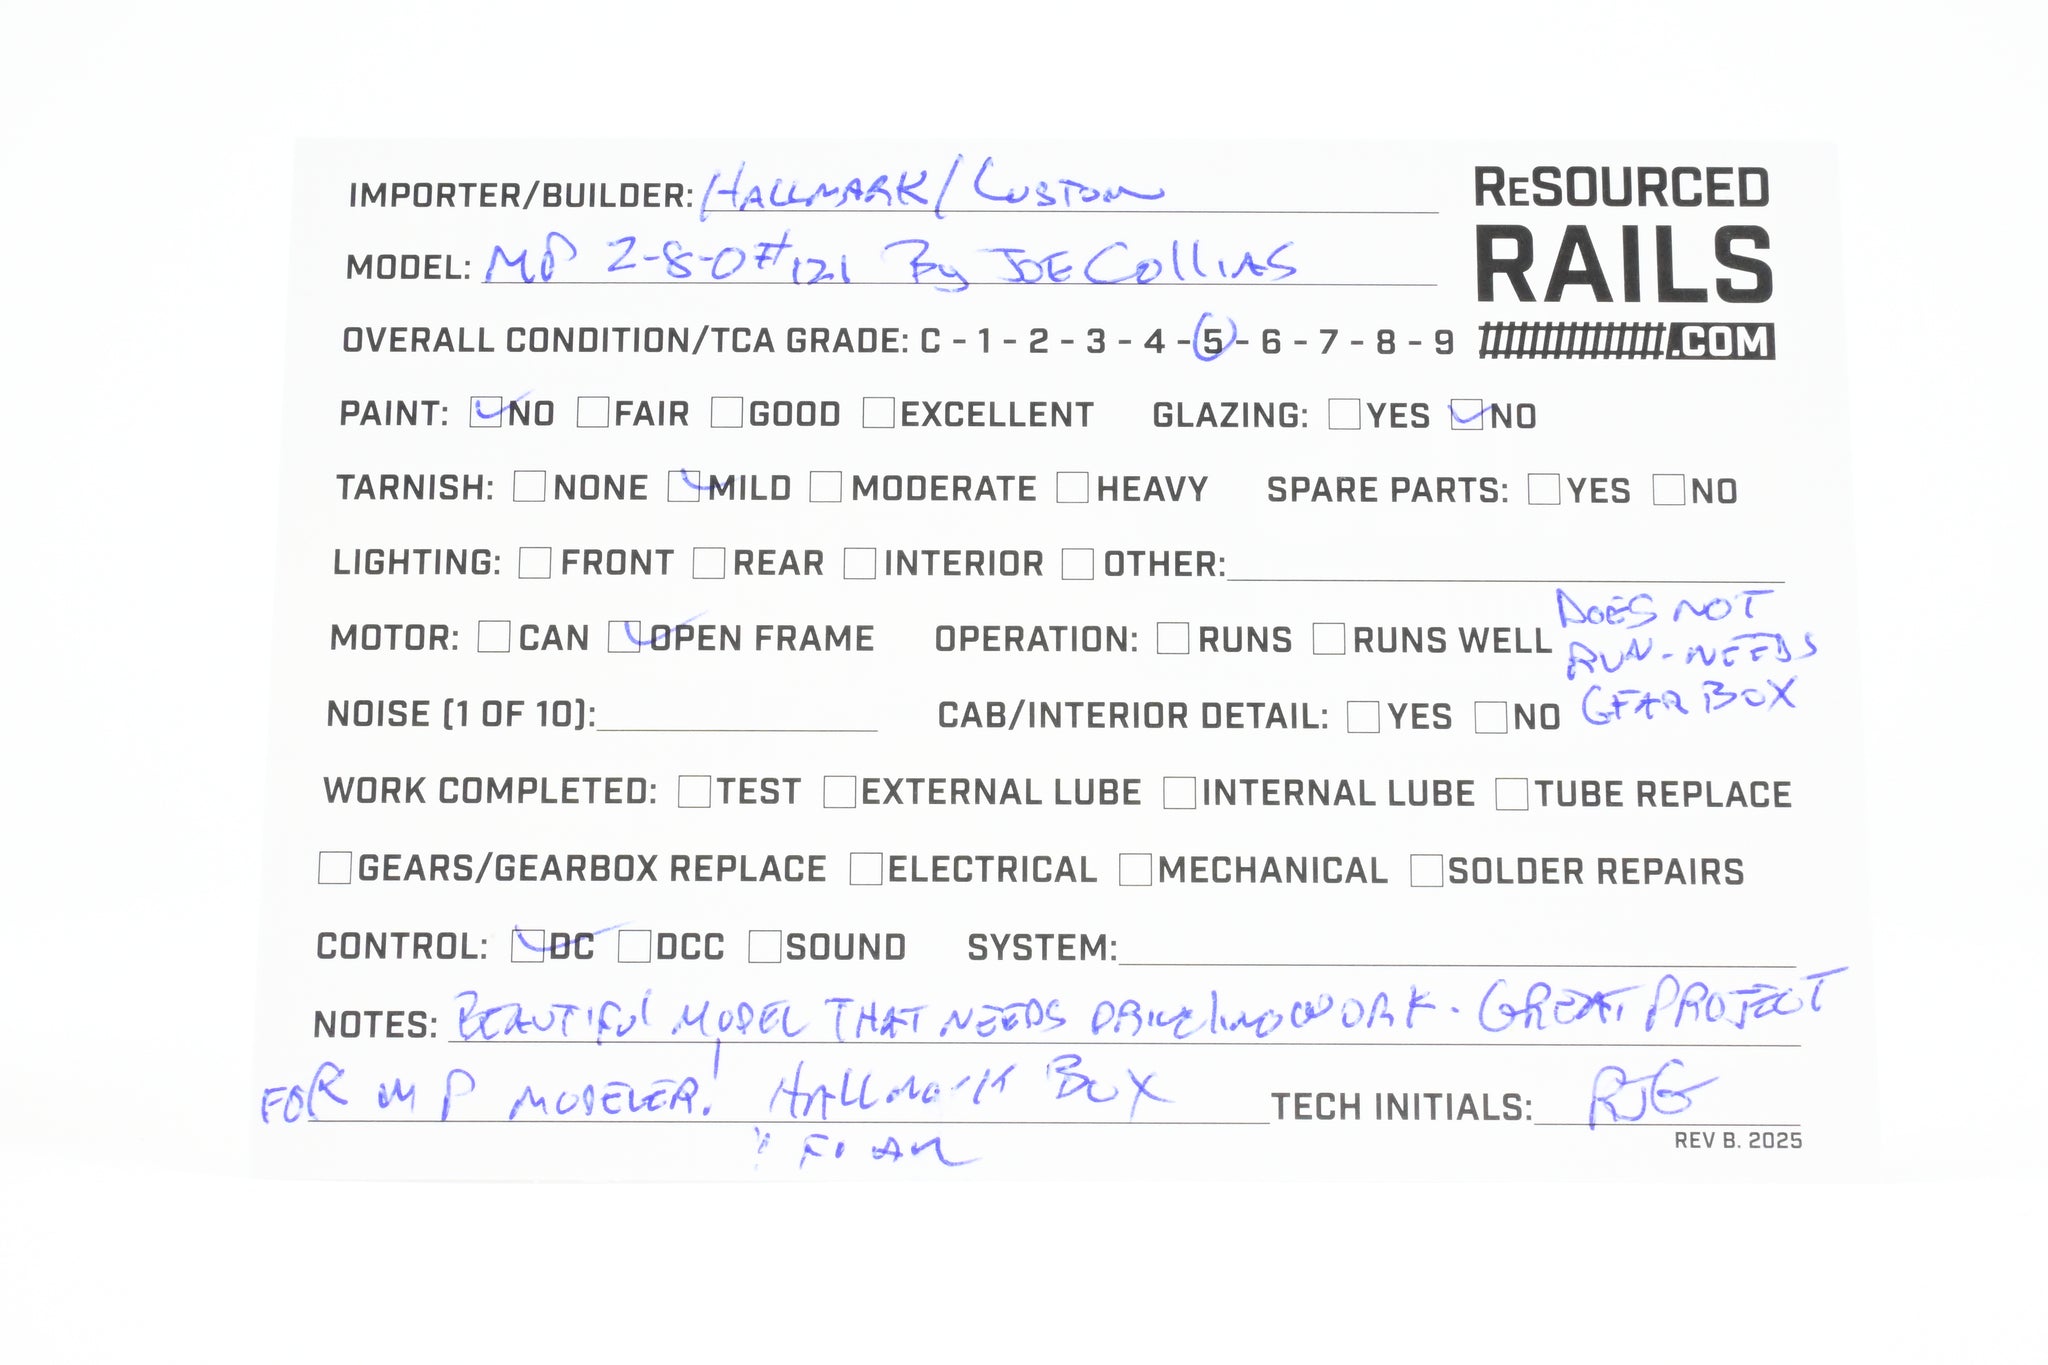 IMPORTER/BUILDER: HALLMARK/CUSTOM
RESOURCED
RAILS
.COM
MODEL: MP 2-8-0 #121 By JOE COLLIAS
OVERALL CONDITION/TCA GRADE: C - 1 - 2 - 3 - 4 - 5 - 6 - 7 - 8 - 9
PAINT: NO FAIR GOOD EXCELLENT GLAZING: YES NO
TARNISH: NONE MILD MODERATE HEAVY SPARE PARTS: YES NO
LIGHTING: FRONT REAR INTERIOR OTHER:
MOTOR: CAN OPEN FRAME OPERATION: RUNS RUNS WELL
DOES NOT
RUN - NEEDS
GEAR BOX
NOISE (1 OF 10): CAB/INTERIOR DETAIL: YES NO
WORK COMPLETED: TEST EXTERNAL LUBE INTERNAL LUBE TUBE REPLACE
GEARS/GEARBOX REPLACE ELECTRICAL MECHANICAL SOLDER REPAIRS
CONTROL: DC DCC SOUND SYSTEM:
NOTES: BEAUTIFUL MODEL THAT NEEDS DRIVELINE WORK. GREAT PROJECT
FOR MP MODELER! HALLMARK BOX
TECH INITIALS: RJG
FOAM
REV B. 2025